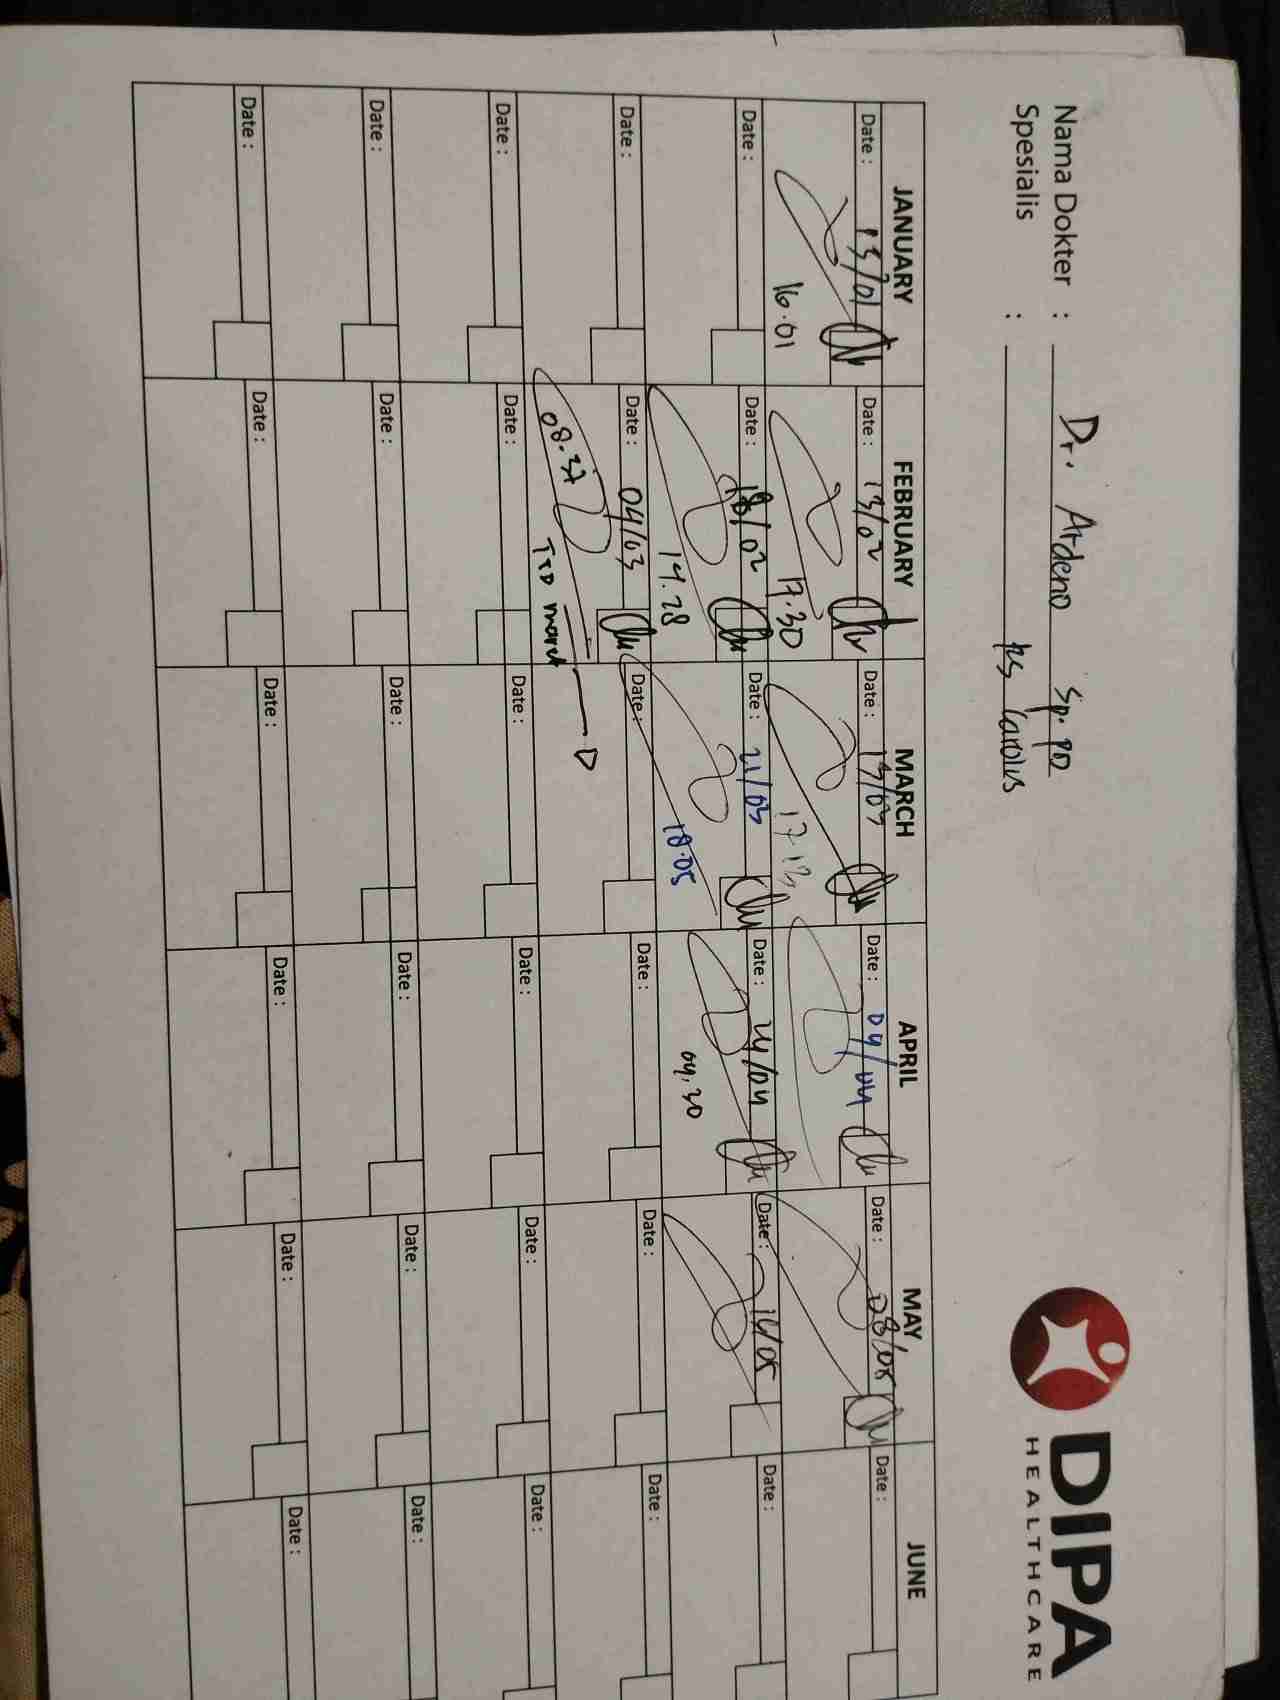 DIPA
HEALTHCARE
Nama Dokter : Dr. Ardeno Sp. PD
Spesialis : RS Carolus
JANUARY FEBRUARY MARCH APRIL MAY JUNE
Date : 13/01 Date : 13/02 Date : 13/03 Date : 04/04 Date : 08/05 Date :
16.01 17.30 17.13
Date : Date : 18/02 Date : 21/03 Date : 24/04 Date : 14/05 Date :
14.28 18.05 04.30
Date : Date : 04/03 Date : Date : Date : Date :
08.37 TTD maret
Date : Date : Date : Date : Date : Date :
Date : Date : Date : Date : Date : Date :
Date : Date : Date : Date : Date : Date :